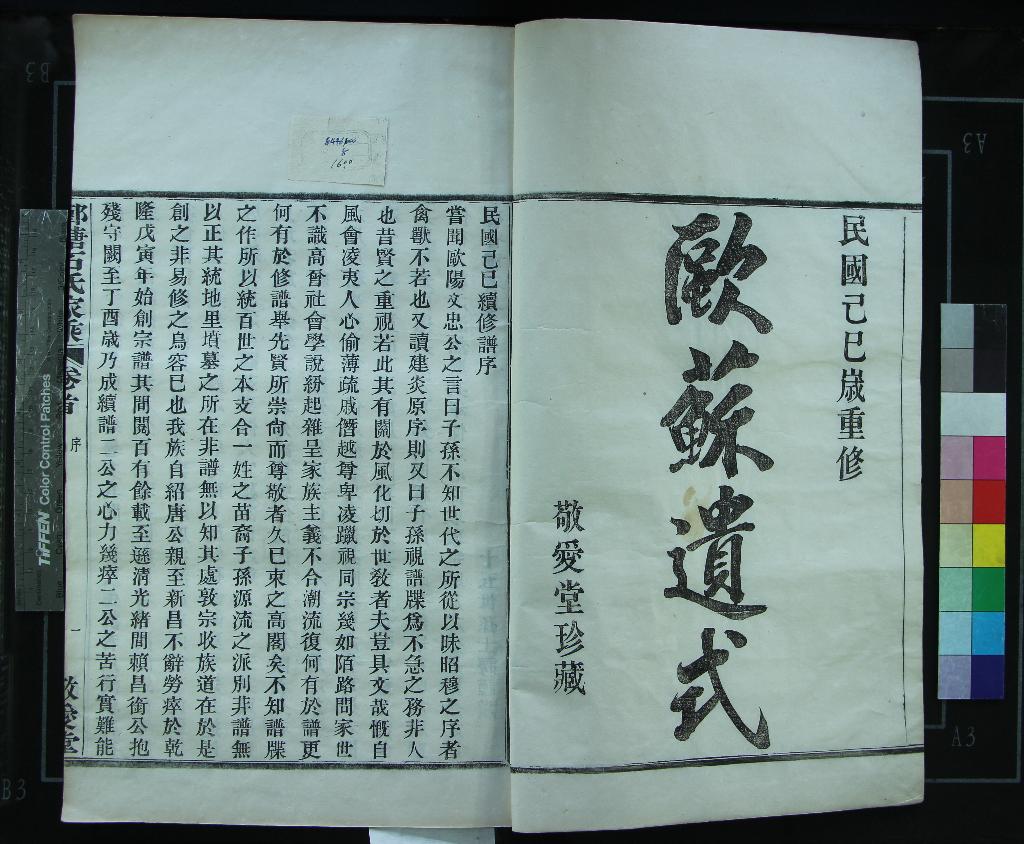 民國己巳歲重修
歐蘇遺式
敬愛堂珍藏
民國己巳續修譜序
嘗聞歐陽文忠公之言曰子孫不知世代之所從以昧昭穆之序者
禽獸不若也又讀建炎原序則又曰子孫視譜牒爲不急之務非人
也昔賢之重視若此其有關於風化切於世教者夫豈具文哉慨自
風會凌夷人心偷薄疏戚僭越尊卑凌躐視同宗幾如陌路問家世
不識高曾社會學說紛起雜呈家族主義不合潮流復何有於譜更
何有於修譜舉先賢所崇尙而尊敬者久已束之高閣矣不知譜牒
之作所以統百世之本支合一姓之苗裔子孫源流之派別非譜無
以正其統地里墳墓之所在非譜無以知其處敦宗收族道在於是
創之非易修之烏容已也我族自紹唐公親至新昌不辭勞瘁於乾
隆戊寅年始創宗譜其間閱百有餘載至遜淸光緒間賴昌銜公抱
殘守闕至丁酉歲乃成續譜二公之心力幾瘁二公之苦行實難能
石氏家乘 卷首
序
一
敬愛堂
1600
TIFFEN Color Control Patches
B3
A3
B3
A3